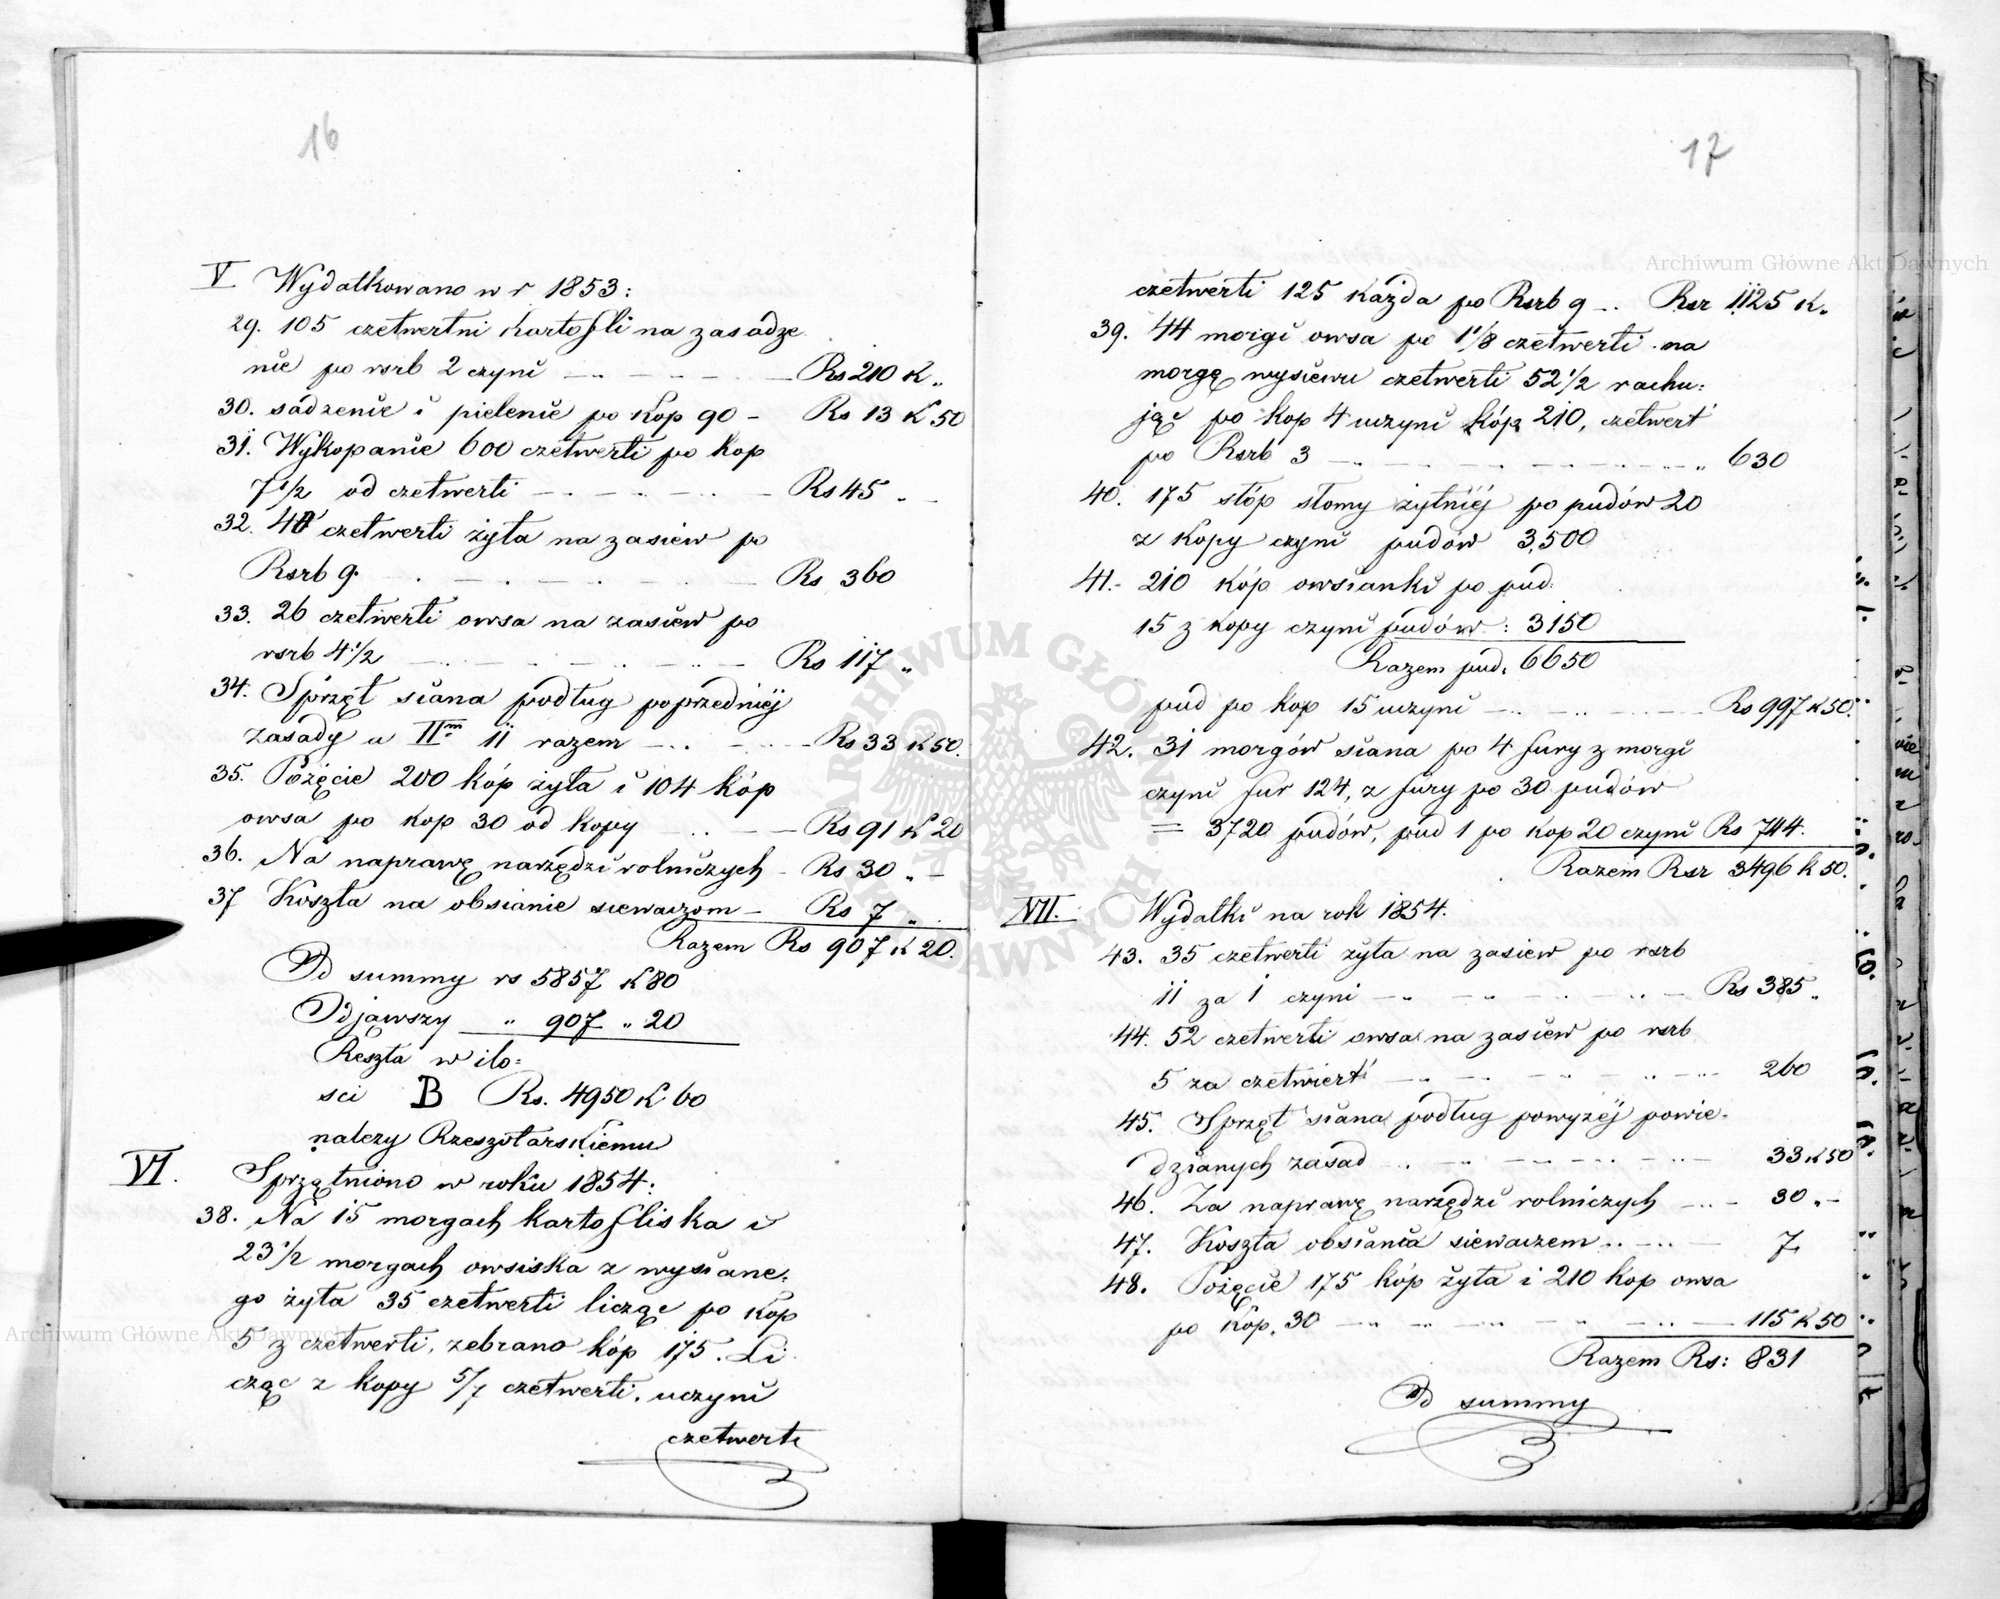 16
V Wydatkowano w r 1853:
29. 105 czetwertni kartofli na zasadze
nie po rsrb 2 czyni Rs 210 K „
30. sadzenie i pielenie po kop 90 - Rs 13 K 50
31. Wykopanie 600 czetwerti po kop
7 1/2 od czetwerti Rs 45 „ -
32. 40 czetwerti żyta na zasiew po
Rsrb 9. Rs 360
33. 26 czetwerti owsa na zasiew po
rsrb 4 1/2 Rs 117 „
34. Sprzęt siana podług poprzedniéj
zasady u IIm 11 razem Rs 33 K 50.
35. Pożęcie 200 kóp żyta i 104 kóp
owsa po kop 30 od kopy Rs 91 K 20
36. Na naprawę narzędzi rolniczych - Rs 30 „ -
37 Koszta na obsianie siewaczom - Rs 7 „
Razem Rs 907 K 20.
Od summy rs 5857 K 80
Odjąwszy „ 907 „ 20
Reszta w ilo=
sci B Rs. 4950 K 60
należy Rzeszotarskiemu
VI. Sprzątniono w roku 1854:
38. Na 15 morgach kartofliska i
23 1/2 morgach owsiska z wysiane=
go żyta 35 czetwerti licząc po kóp
5 z czetwerti, zebrano kóp 175. Li
cząc z kopy 5/7 czetwerti, uczyni
czetwerti
17
czetwerti 125 każda po Rsrb 9 .. Rsr 1125 K„
39. 44 morgi owsa po 1 1/8 czetwerti na
morgę wysiewu czetwerti 52 1/2 rachu=
jąc po kop 4 uczyni kóp 210, czetwert'
po Rsrb 3 „ 630
40. 175 stóp słomy żytniéj po pudów 20
z kopy czyni pudów 3,500
41.- 210 kóp owsianki po pud:
15 z kopy czyni pudów: 3150
Razem pud. 6650
pud po kop 15 uczyni Rs 997 K 50.
42. 31 morgów siana po 4 fury z morgi
czyni fur 124, z fury po 30 pudów
= 3720 pudów, pud 1 po kop 20 czyni Rs 744.
Razem Rsr 3496 K 50.
VII. Wydatki na rok 1854.
43. 35 czetwerti żyta na zasiew po rsrb
11 za 1 czyni Rs 385 „
44. 52 czetwerti owsa na zasiew po rsrb
5 za czetwiert' 260
45. Sprzęt siana podług powyżéj powie=
dzianych zasad 33 K 50
46. Za naprawę narzędzi rolniczych 30 „ -
47. Koszta obsiania siewaczem 7,
48. Pożęcie 175 kóp żyta i 210 kop owsa
po kop. 30 115 K 50
Razem Rs: 831
Od summy
Archiwum Główne Akt Dawnych
Archiwum Główne Akt Dawnych
ARCHIWUM GŁÓWNE AKT DAWNYCH